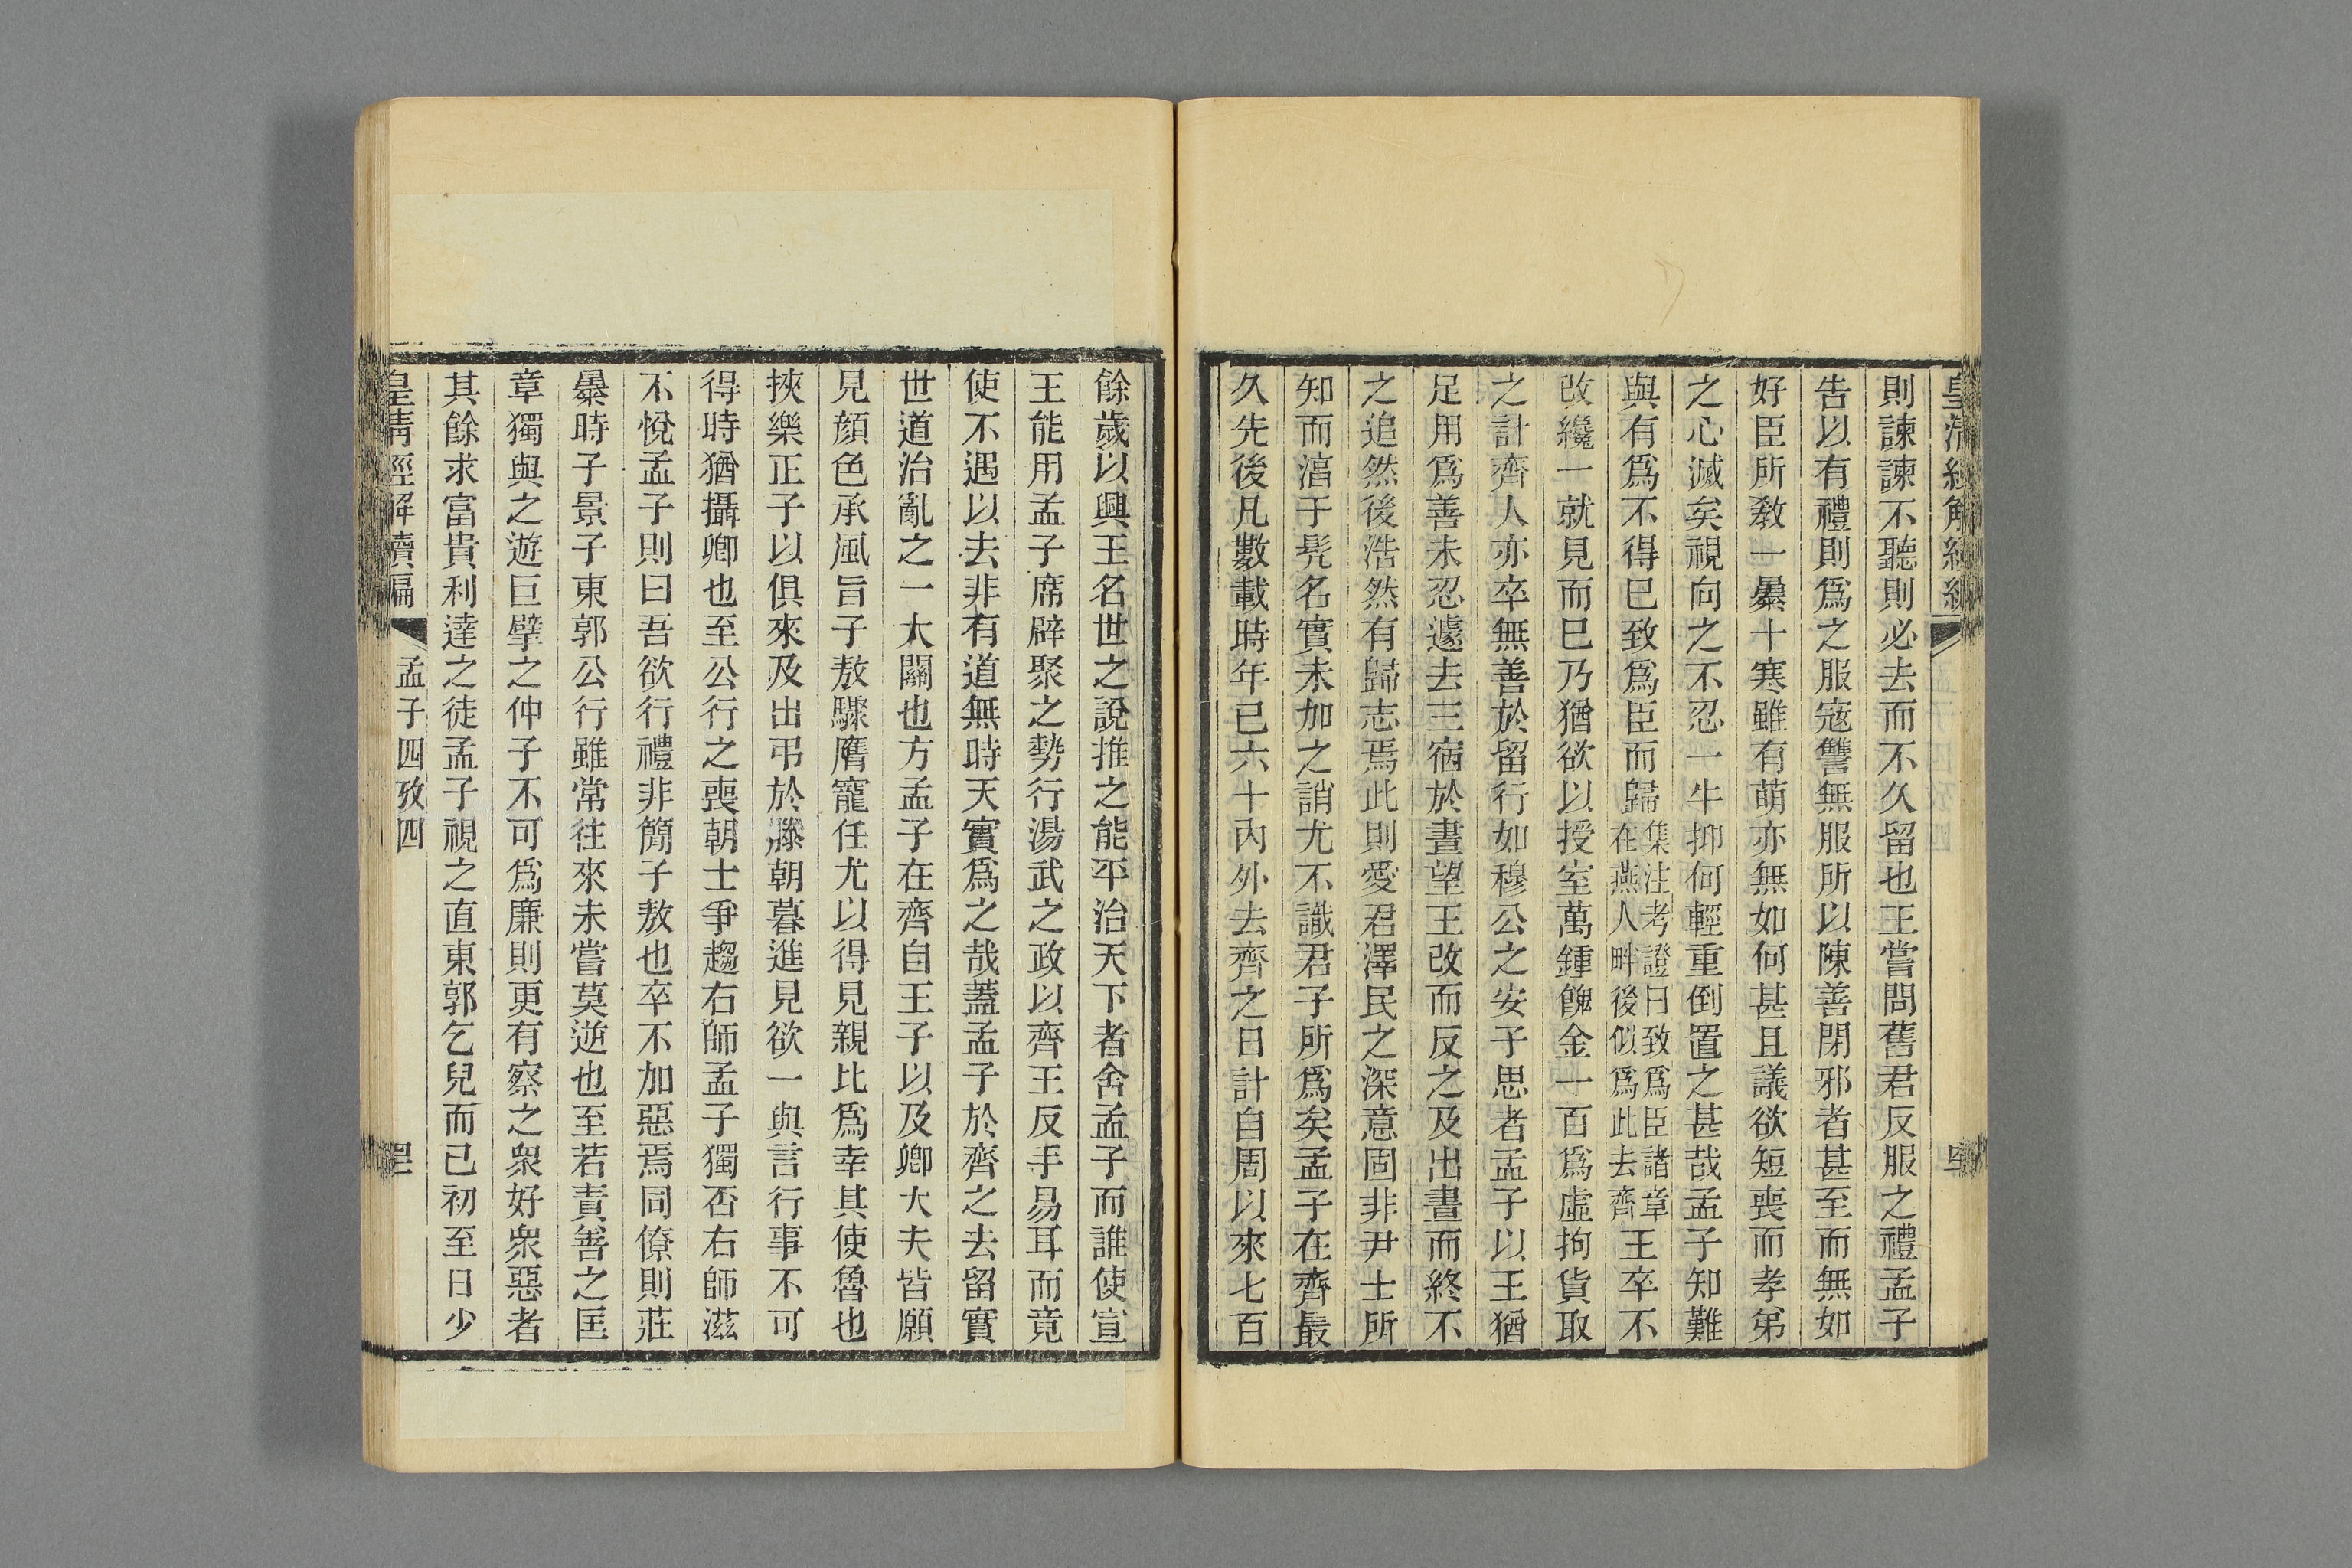 則諫諫不聽則必去而不久留也王嘗問舊君反服之禮孟子
告以有禮則爲之服寇讐無服所以陳善閉邪者甚至而無如
好臣所敎一曓十寒雖有萌亦無如何甚且議欲短喪而孝弟
之心滅矣視向之不忍一牛抑何輕重倒置之甚哉孟子知難
與有爲不得已致爲臣而歸集注考證曰致爲臣諸章在燕人畔後似爲此去齊王卒不
改纔一就見而已乃猶欲以授室萬鍾餽金一百爲虛拘貨取
之計齊人亦卒無善於留行如穆公之安子思者孟子以王猶
足用爲善未忍遽去三宿於晝望王改而反之及出晝而終不
之追然後浩然有歸志焉此則愛君澤民之深意固非尹士所
知而湻于髡名實未加之誚尤不識君子所爲矣孟子在齊最
久先後凡數載時年已六十內外去齊之日計自周以來七百
餘歲以興王名世之說推之能平治天下者舍孟子而誰使宣
王能用孟子席辟聚之勢行湯武之政以齊王反手易耳而竟
使不遇以去非有道無時天實爲之哉蓋孟子於齊之去留實
世道治亂之一大關也方孟子在齊自王子以及卿大夫皆願
見顏色承風旨子敖驟膺寵任尤以得見親比爲幸其使魯也
挾樂正子以俱來及出弔於滕朝暮進見欲一與言行事不可
得時猶攝卿也至公行之喪朝士爭趨右師孟子獨否右師滋
不悅孟子則曰吾欲行禮非簡子敖也卒不加惡焉同僚則莊
曓時子景子東郭公行雖常往來未嘗莫逆也至若責善之匡
章獨與之遊巨擘之仲子不可爲廉則更有察之衆好衆惡者
其餘求富貴利達之徒孟子視之直東郭乞兒而已初至日少
皇淸經解續編 孟子四攷四